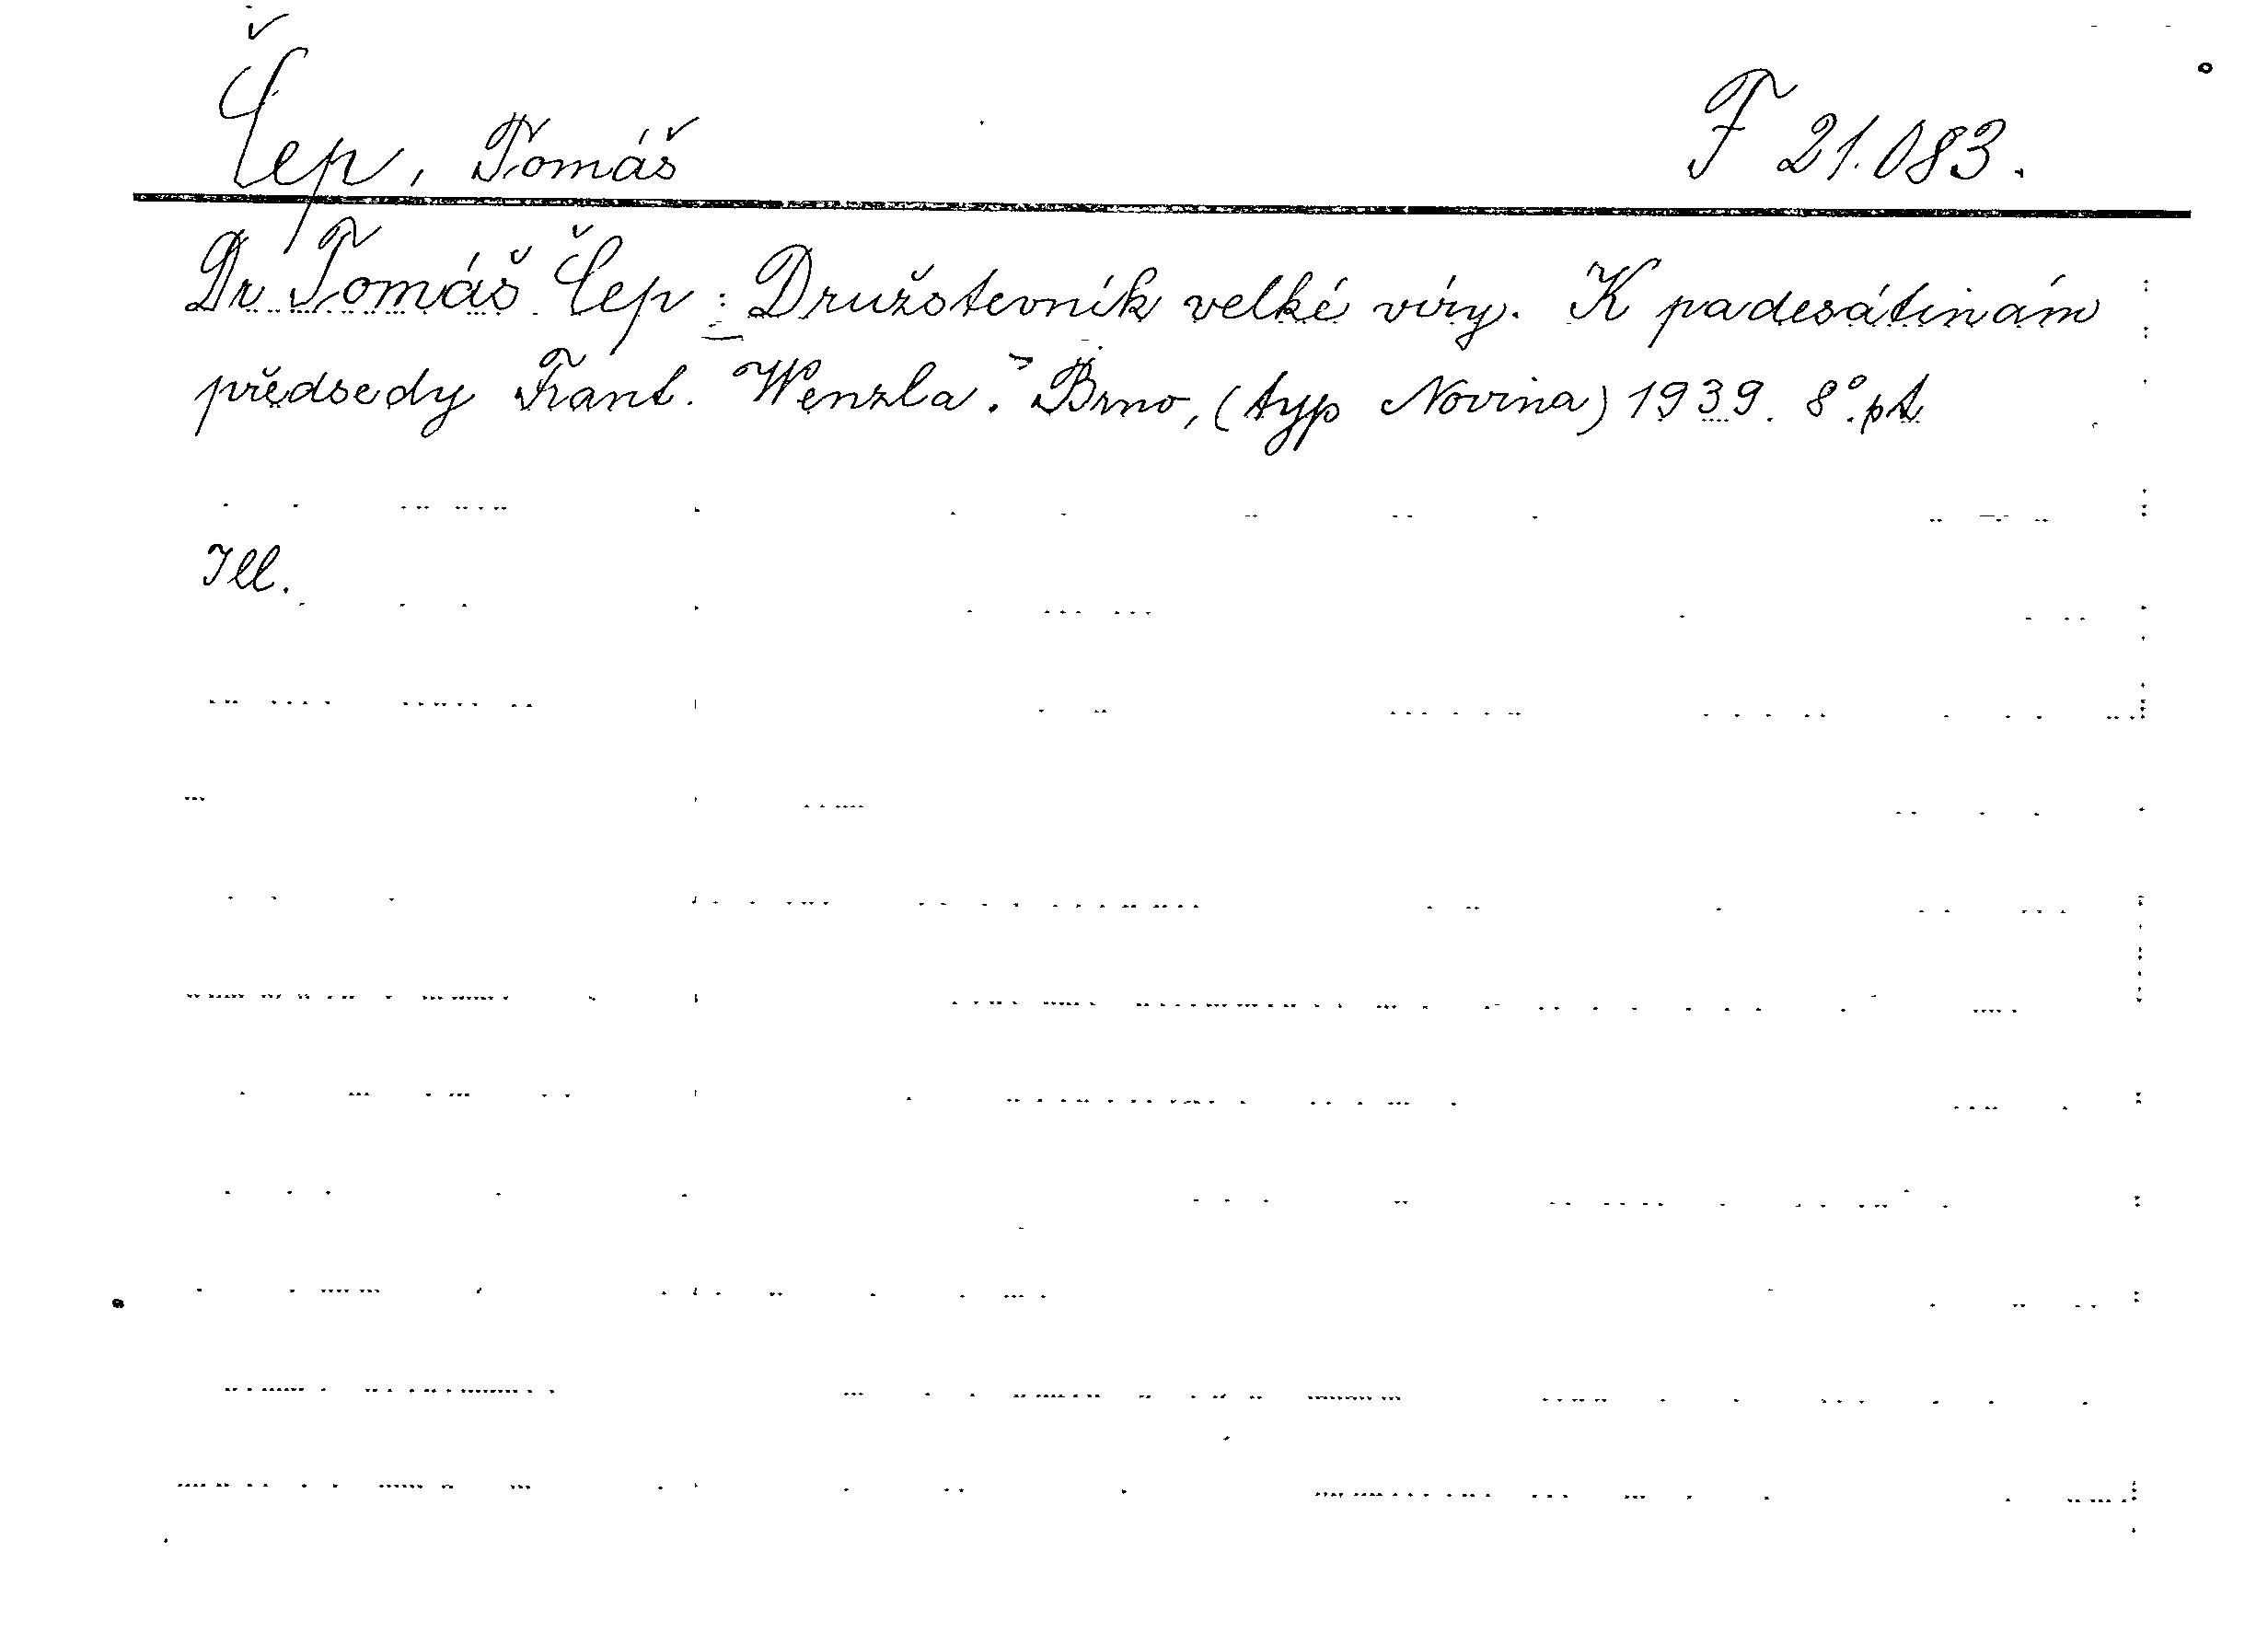 Čep, Tomáš F 21.083.
Dr Tomáš Čep: Družstevník velké víry. K padesátinám
předsedy Frant. Wenzla. Brno, (typ Novina) 1939. 8°. pt
Ill.